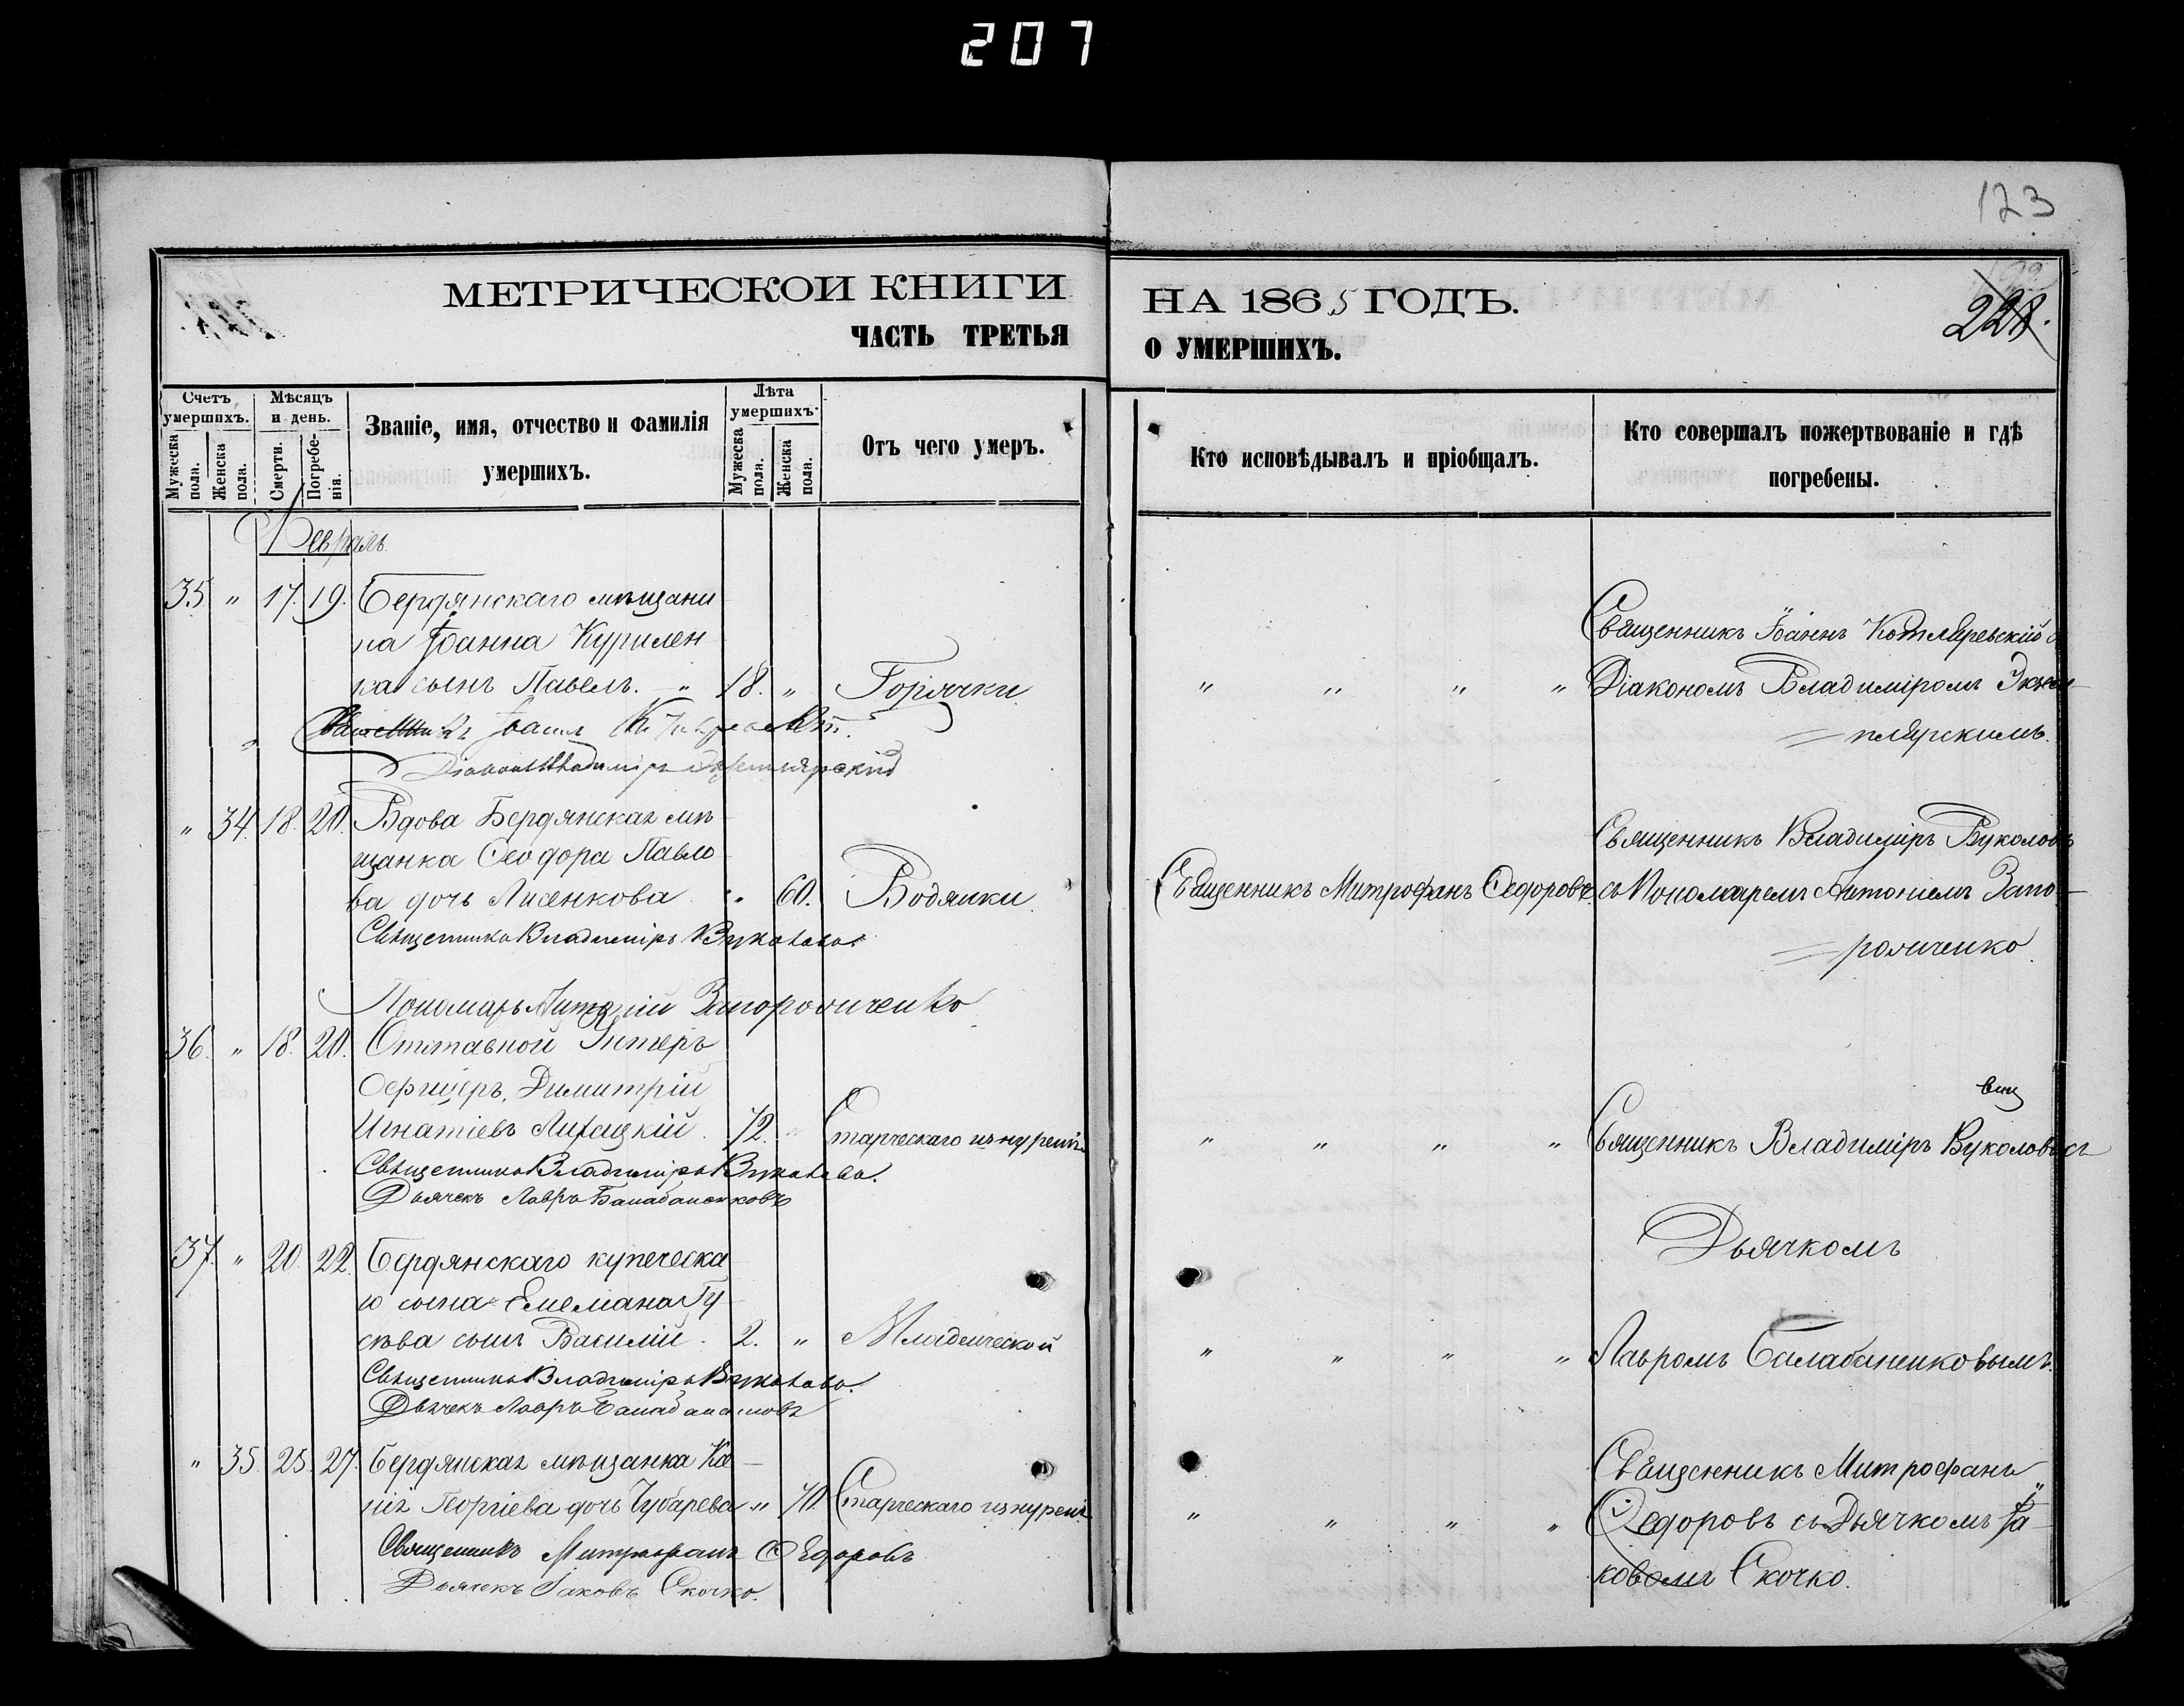 207
123
МЕТРИЧЕСКОЙ КНИГИ НА 1865 ГОДЪ.
228.
ЧАСТЬ ТРЕТЬЯ О УМЕРШИХЪ.
Счетъ умершихъ.
Мужеска пола.
Женска пола.
Мѣсяцъ и день.
Смерти.
Погребенія.
Званіе, имя, отчество и фамилія
умершихъ.
Лѣта умершихъ.
Мужеска пола.
Женска пола.
Отъ чего умеръ.
Кто исповѣдывалъ и пріобщалъ.
Кто совершалъ пожертвованіе и гдѣ
погребены.
Февраль.
35 " 17. 19. Бердянскаго мѣщани
на Іоанна Курилен
ка сынъ Павелъ. " 18. " Горячки " " " "
Священникъ Іоаннъ Котляревскій с
Діакономъ Владиміромъ Экзем
= плярскимъ.
Діаконъ Владиміръ Экземплярскій
" 34. 18. 20. Вдова Бердянская мѣ
щанка Ѳеодора Павло
ва дочь Лисенкова " 60. Водянки
Священникъ Владиміръ Вуколовъ
Священникъ Митрофанъ Ѳедоровъ
Священникъ Владиміръ Вуколовъ
съ Пономаремъ Антоніемъ Запо
= рожченко
Пономарь Антоній Запорожченко
36. " 18. 20. Отставной Унтеръ
Офицеръ, Димитрій
Игнатіевъ 72. " Старческаго изнуренія " " " "
Священникъ Владиміръ Вуколовъ.
Дьячекъ Лавръ Балабаненковъ
Священникъ Владиміръ Вуколовъ съ
Дьячкомъ
37. " 20. 22. Бердянскаго купеческа
го сына Емельяна Гу
сѣва сынъ Василій. 2. " Младенческой " " " "
Священникъ Владиміръ Вуколовъ.
Дьячекъ Лавръ
Лавромъ Балабаненковымъ.
" 35. 25. 27. Бердянская мѣщанка Ксе
нія Георгіева дочь Чубарева " 70 Старческаго изнуренія " " " "
Священникъ Митрофанъ Ѳедоровъ
Дьячекъ Іаковъ Скочко.
Священникъ Митрофанъ
Ѳедоровъ съ Дьячкомъ Іа
ковомъ Скочко.